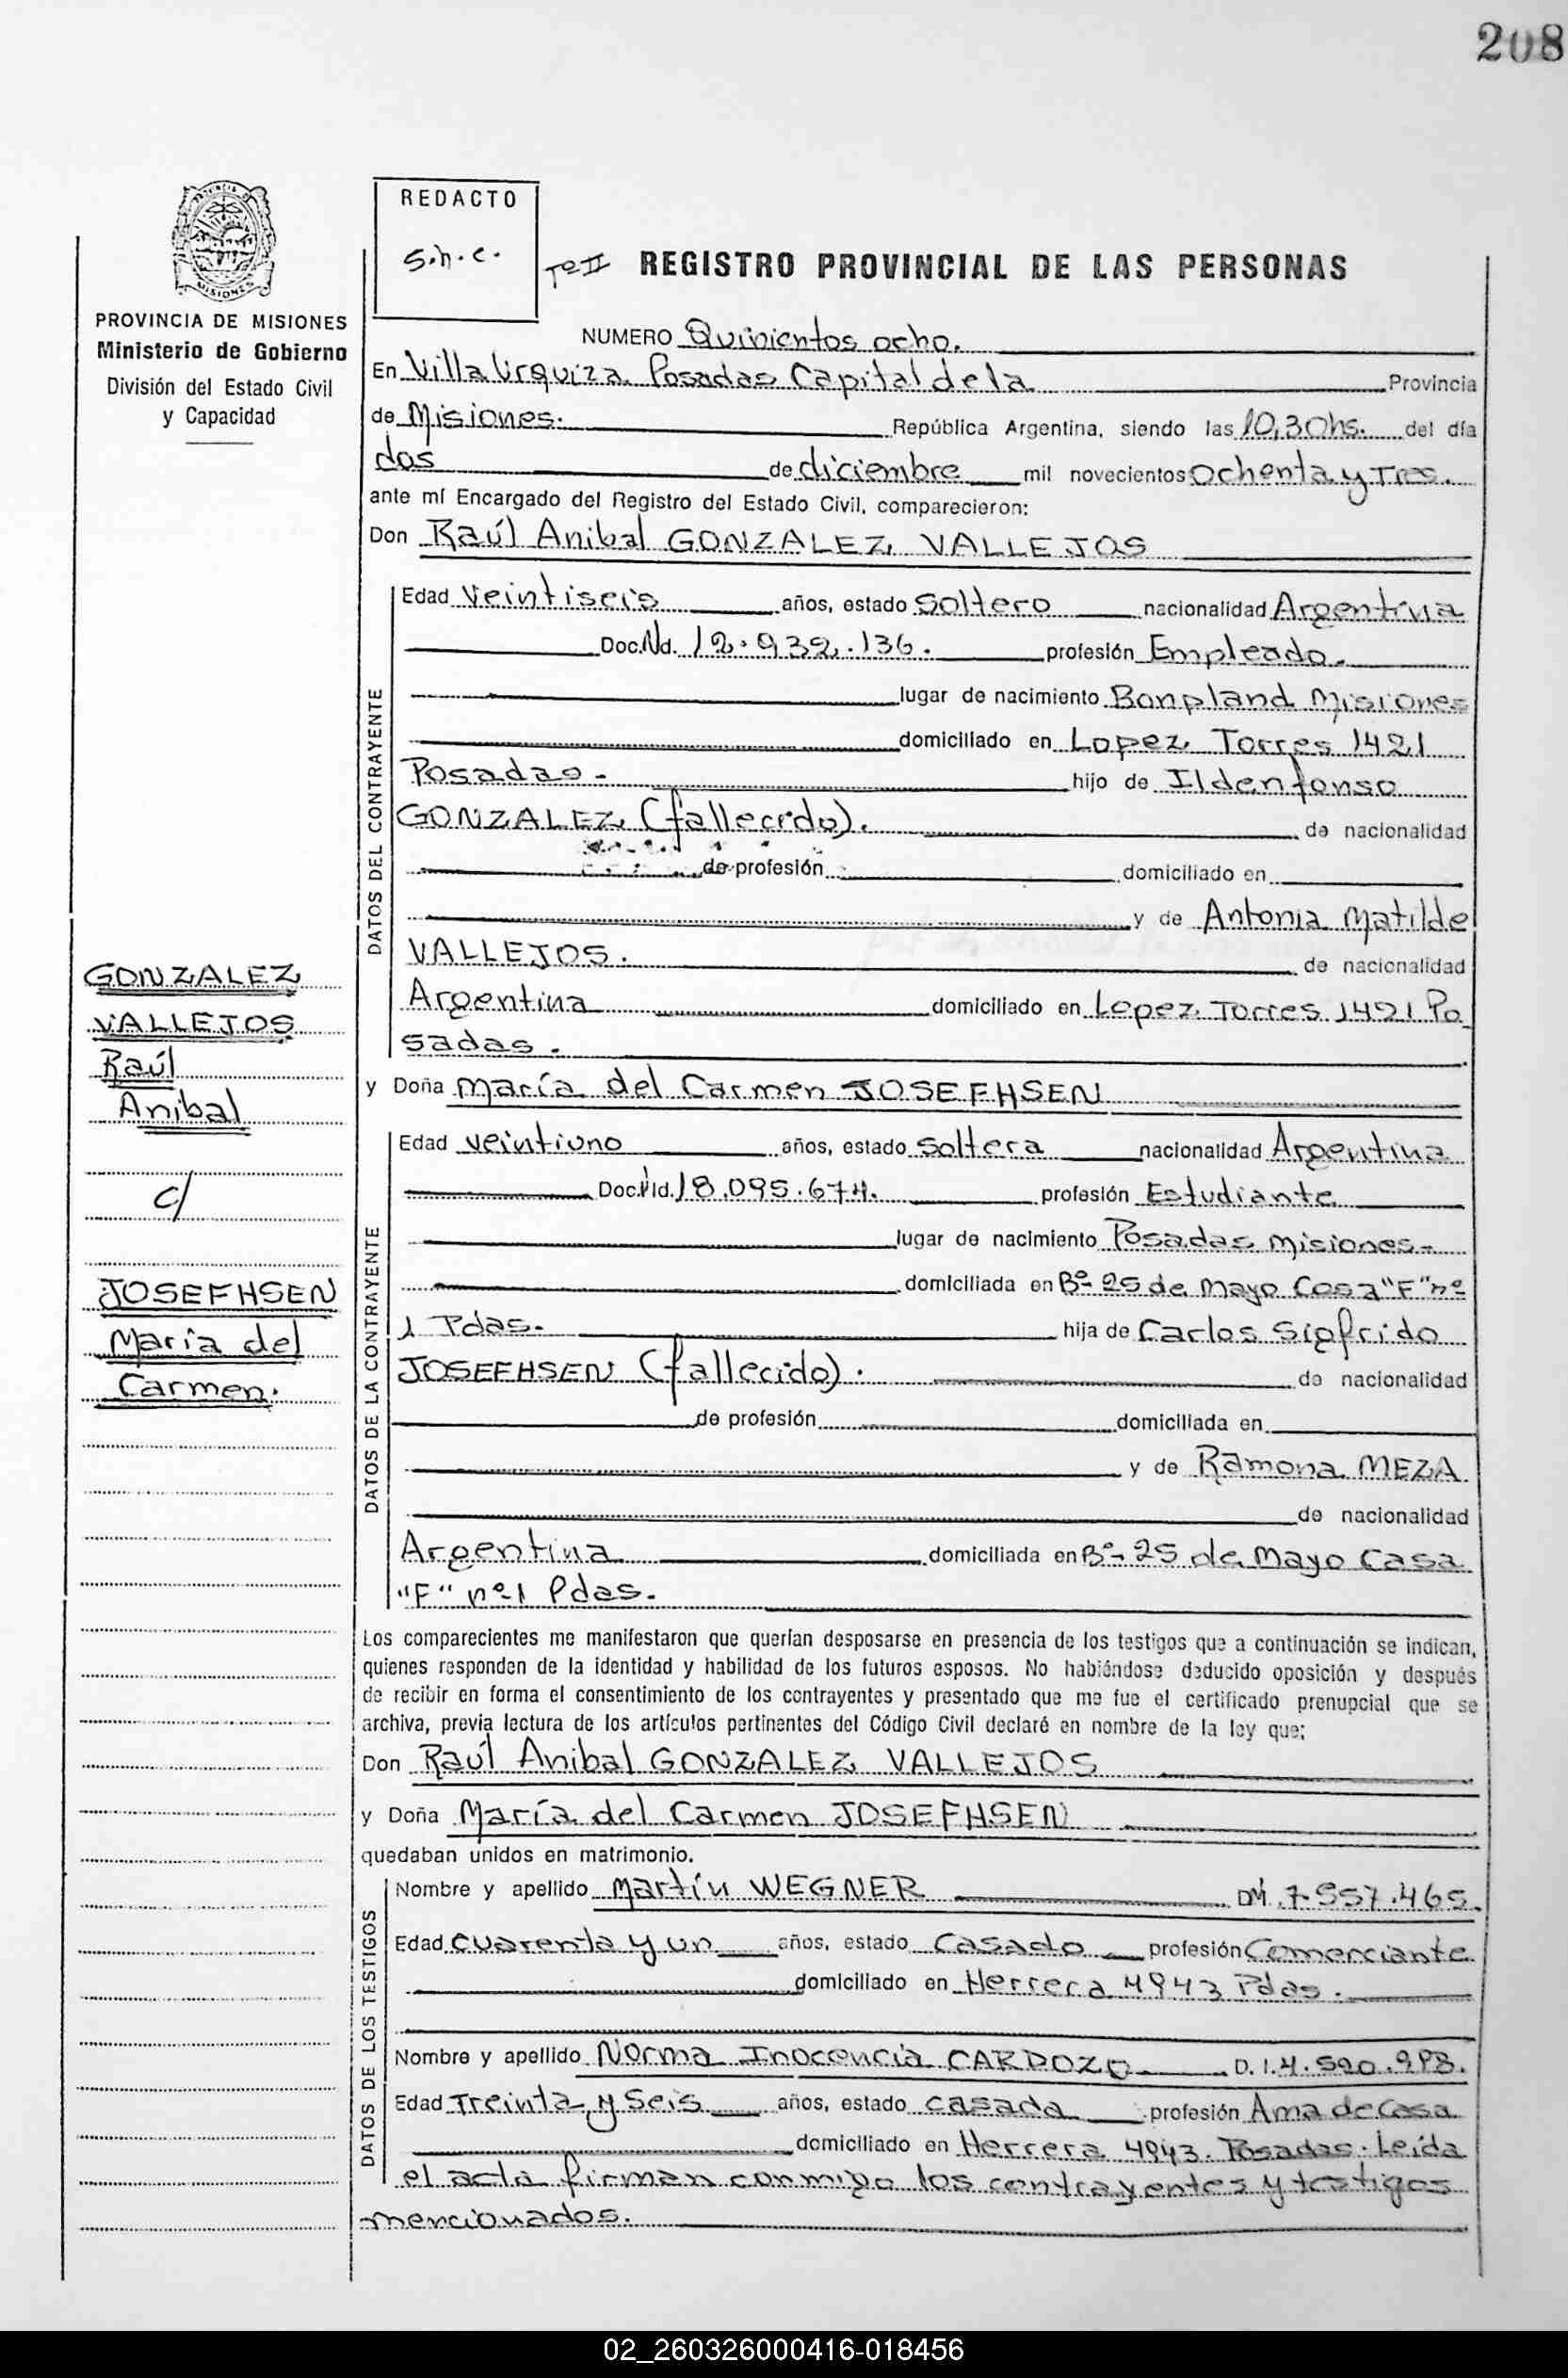 208
REDACTO
s.h.c.
Tº II
REGISTRO PROVINCIAL DE LAS PERSONAS
MISIONES
PROVINCIA DE MISIONES
Ministerio de Gobierno
División del Estado Civil
y Capacidad
NUMERO Quinientos ocho.
En Villa Urquiza Posadas Capital de la Provincia
de Misiones. República Argentina, siendo las 10,30hs. del día
dos de diciembre mil novecientos ochenta y Tres.
ante mí Encargado del Registro del Estado Civil, comparecieron:
Don Raúl Anibal GONZALEZ VALLEJOS
DATOS DEL CONTRAYENTE
Edad veintiseis años, estado soltero nacionalidad Argentina
Doc.Nd. 12.932.136. profesión Empleado.
lugar de nacimiento Bonpland Misiones
domiciliado en Lopez Torres 1421
Posadas - hijo de Ildenfonso
GONZALEZ (fallecido). de nacionalidad
de profesión domiciliado en
y de Antonia Matilde
VALLEJOS. de nacionalidad
Argentina domiciliado en Lopez Torres 1421 Po
sadas.
GONZALEZ
VALLEJOS
Raúl
Anibal
c/
JOSEFHSEN
María del
Carmen.
y Doña María del Carmen JOSEFHSEN
DATOS DE LA CONTRAYENTE
Edad veintiuno años, estado soltera nacionalidad Argentina
18.095.674. profesión Estudiante
lugar de nacimiento Posadas Misiones-
domiciliada en Bº- 25 de Mayo Casa "F" nº
1 Pdas. hija de Carlos Sigfrido
JOSEFHSEN (fallecido). de nacionalidad
de profesión domiciliada en
y de Ramona MEZA
de nacionalidad
Argentina domiciliada en Bº- 25 de Mayo Casa
"F" nº1 Pdas.
Los comparecientes me manifestaron que querían desposarse en presencia de los testigos que a continuación se indican,
quienes responden de la identidad y habilidad de los futuros esposos. No habiéndose deducido oposición y después
de recibir en forma el consentimiento de los contrayentes y presentado que me fue el certificado prenupcial que se
archiva, previa lectura de los artículos pertinentes del Código Civil declaré en nombre de la ley que:
Don Raúl Anibal GONZALEZ VALLEJOS
y Doña María del Carmen JOSEFHSEN
quedaban unidos en matrimonio.
DATOS DE LOS TESTIGOS
Nombre y apellido Martín WEGNER DNI. 7557.465.
Edad cuarenta y un años, estado casado profesión Comerciante
domiciliado en Herrera 4943 Pdas.
Nombre y apellido Norma Inocencia CARDOZO D.I.
Edad Treinta y seis años, estado casada profesión Ama de Casa
domiciliado en Herrera 4943. Posadas. Leída
el acta firman conmigo los contrayentes y testigos
mencionados.
02_260326000416-018456